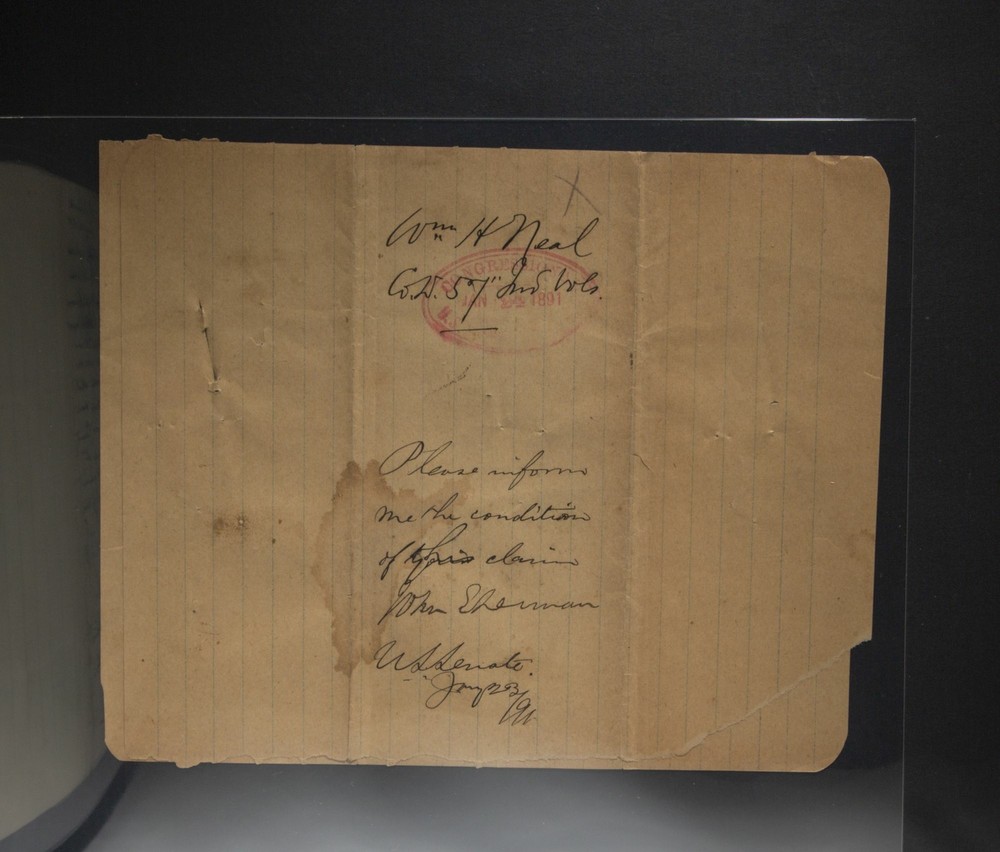 Wm H Neal
Co. D. 57" Ind Vols.
CONGRESSIONAL
JAN 1891
Please inform
me the condition
of this claim
John Sherman
U S Senate.
Jany 23/91